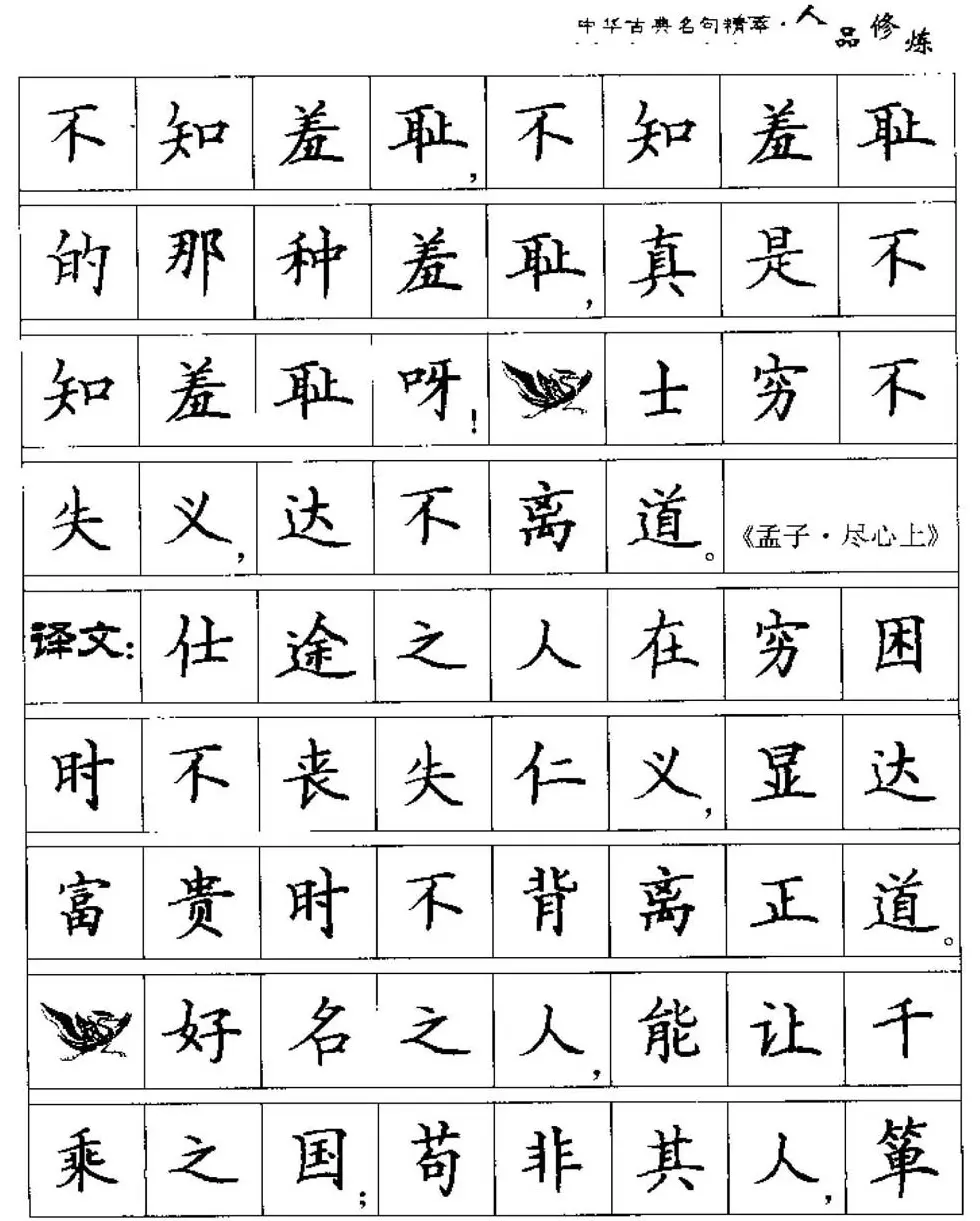 中华古典名句精萃·人品修炼
不知羞耻,不知羞耻
的那种羞耻,真是不
知羞耻呀!士穷不
失义,达不离道。《孟子·尽心上》
译文:仕途之人在穷困
时不丧失仁义,显达
富贵时不背离正道。
好名之人,能让千
乘之国;苟非其人,箪